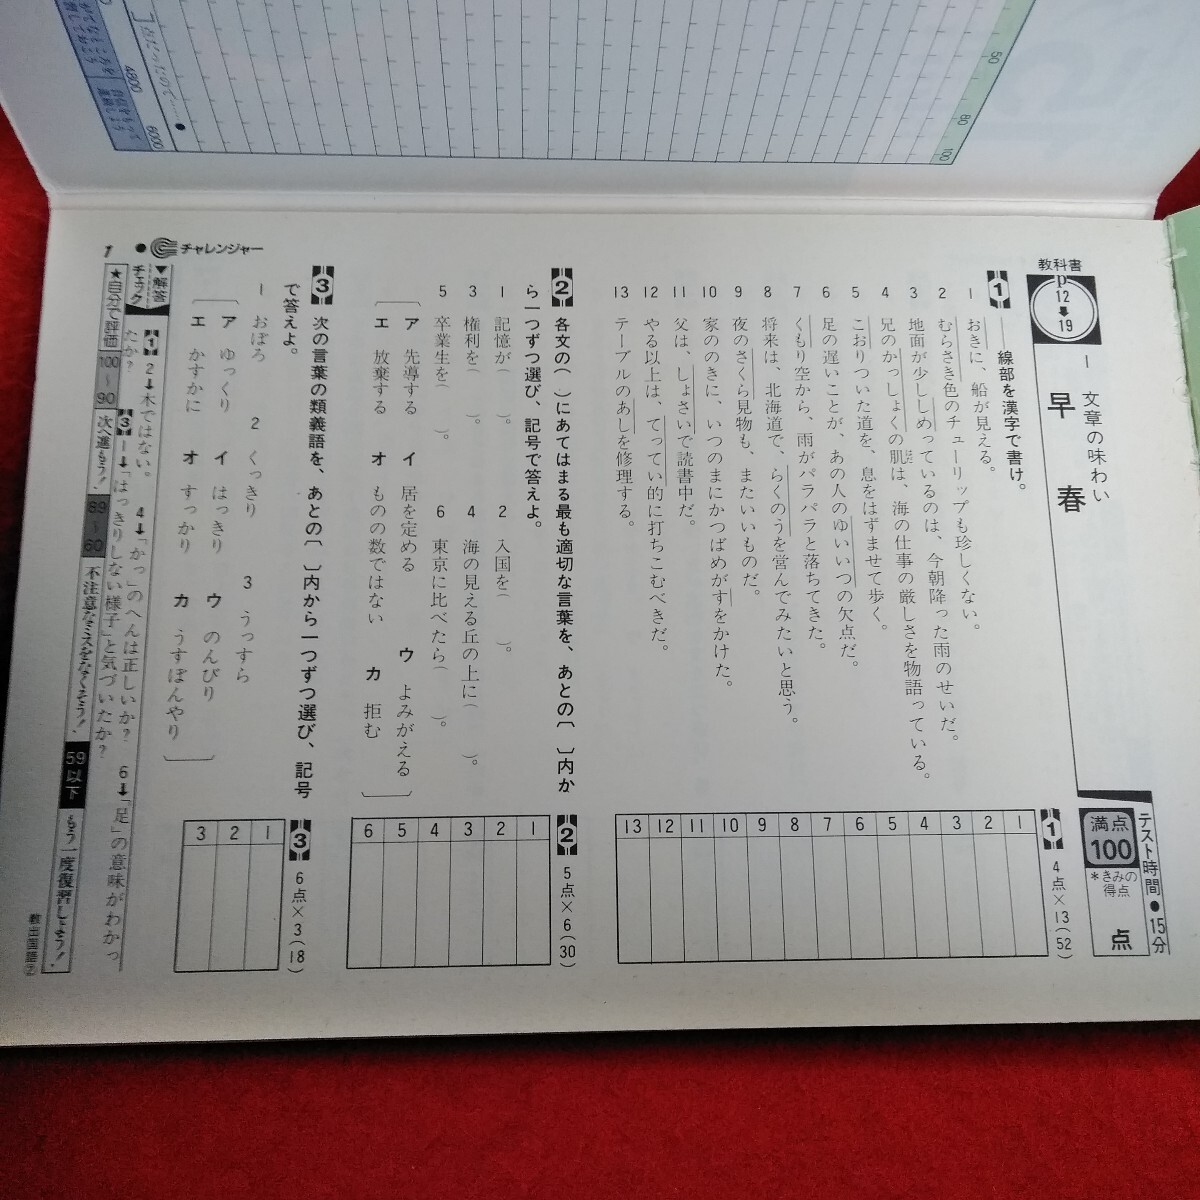 50
80
100
4800
6000
教科書
p12➡19
一 文章の味わい
早春
テスト時間●15分
満点100
*きみの得点
点
1 ――線部を漢字で書け。
1 おきに、船が見える。
2 むらさき色のチューリップも珍しくない。
3 地面が少ししめっているのは、今朝降った雨のせいだ。
4 兄のかっしょくの肌は、海の仕事の厳しさを物語っている。
5 こおりついた道を、息をはずませて歩く。
6 足の遅いことが、あの人のゆいいつの欠点だ。
7 くもり空から、雨がパラパラと落ちてきた。
8 将来は、北海道で、らくのうを営んでみたいと思う。
9 夜のさくら見物も、またいいものだ。
10 家ののきに、いつのまにかつばめがすをかけた。
11 父は、しょさいで読書中だ。
12 やる以上は、てってい的に打ちこむべきだ。
13 テーブルのあしを修理する。
2 各文の( )にあてはまる最も適切な言葉を、あとの〔 〕内か
ら一つずつ選び、記号で答えよ。
1 記憶が( )。 2 入国を( )。
3 権利を( )。 4 海の見える丘の上に( )。
5 卒業生を( )。 6 東京に比べたら( )。
〔ア 先導する イ 居を定める ウ よみがえる
エ 放棄する オ ものの数ではない カ 拒む〕
3 次の言葉の類義語を、あとの〔 〕内から一つずつ選び、記号
で答えよ。
1 おぼろ 2 くっきり 3 うっすら
〔ア ゆっくり イ はっきり ウ のんびり
エ かすかに オ すっかり カ うすぼんやり〕
1 4点×13(52)
1 2 3 4 5 6 7 8 9 10 11 12 13
2 5点×6(30)
1 2 3 4 5 6
3 6点×3(18)
1 2 3
▼解答チェック
1 2➡木ではない。 4➡「かっ」のへんは正しいか? 6➡「足」の意味がわかっ
たか? 3 1➡「はっきりしない様子」と気づいたか?
★自分で評価 100〜90 次へ進もう! 89〜60 不注意なミスをなくそう! 59以下 もう一度復習しよう!
1 ● チャレンジャー
教出国語②